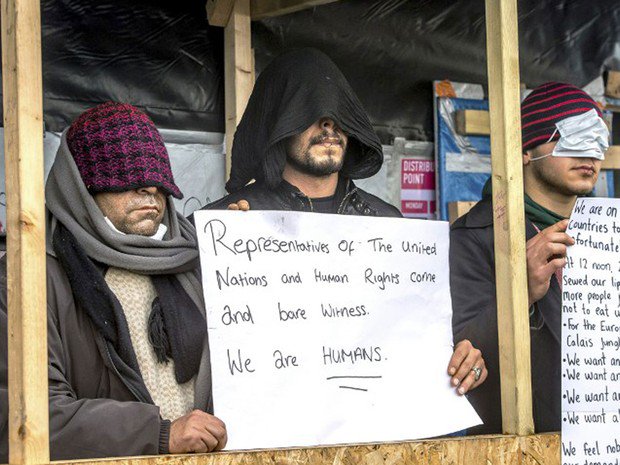 DISTRIB
POINT
MONDAY
Representatives of The United
Nations and Human Rights come
and bare Witness.
We are HUMANS.
We are on
Countries to
fortunate
At 12 noon,
sewed our lip
more people
not to eat u
• For the Euro
Calais jungl
• We want an
• We want an
• We want an
• We want al
We feel nob
our demand